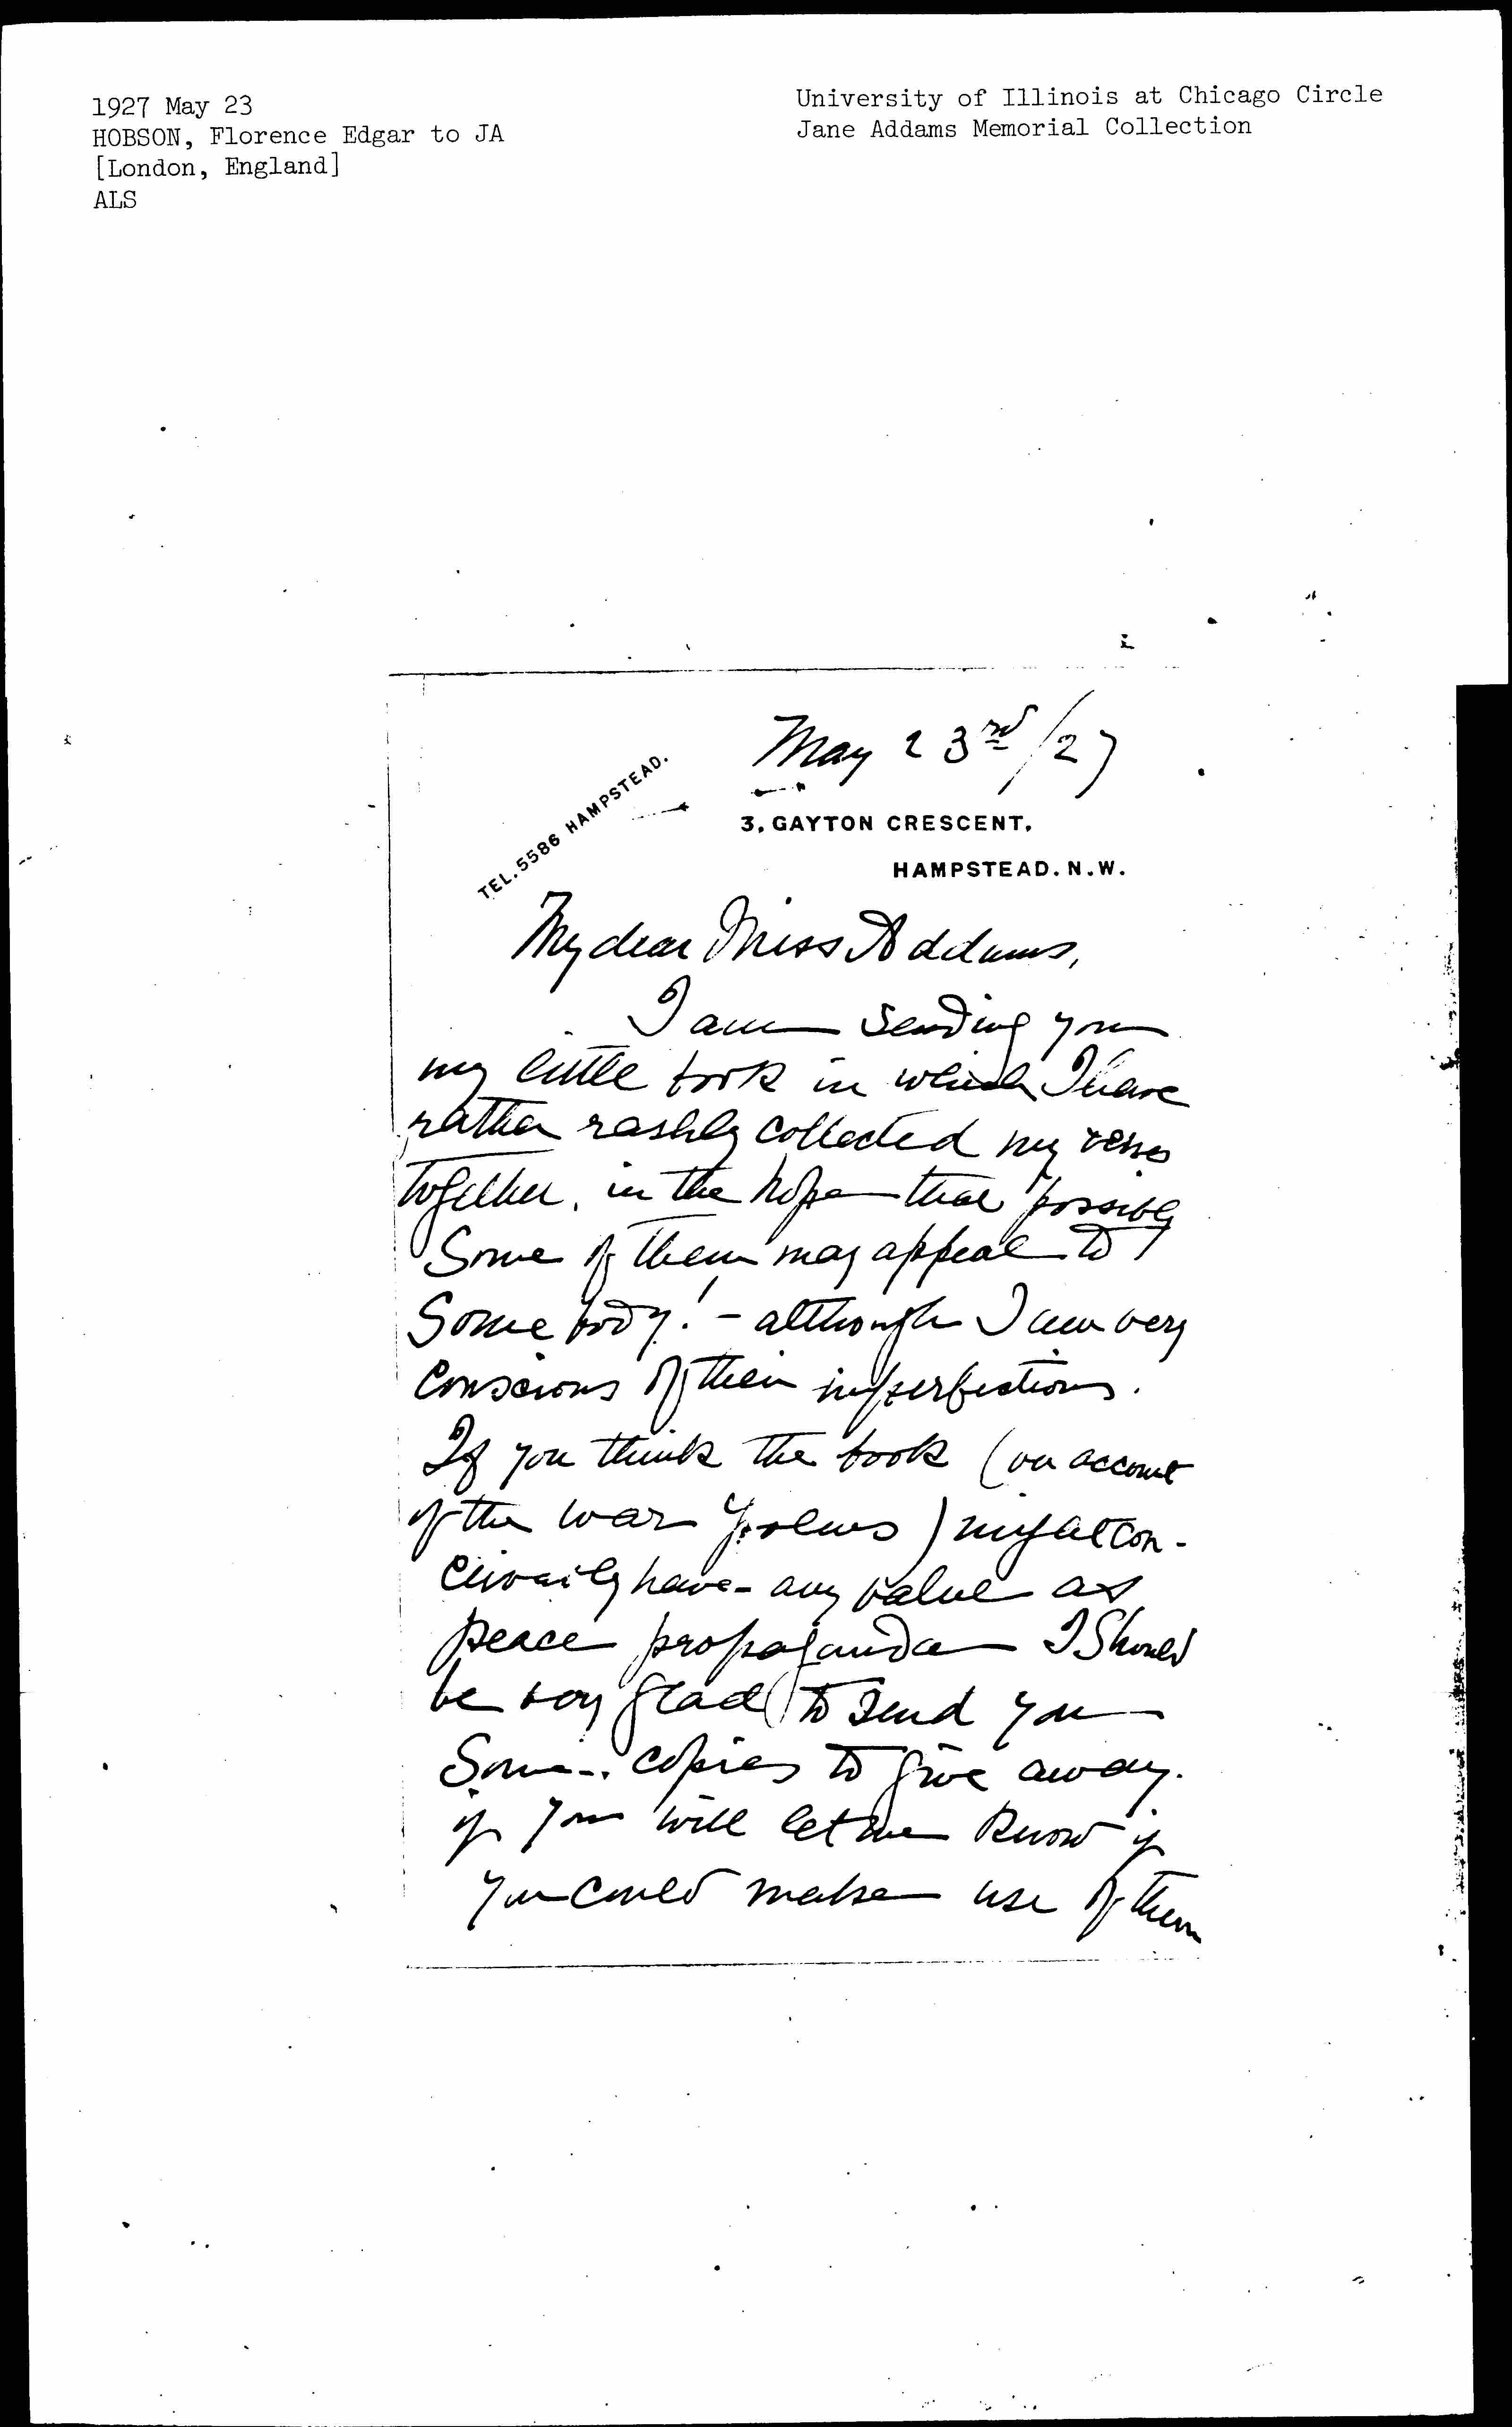 1927 May 23
HOBSON, Florence Edgar to JA
[London, England]
ALS
University of Illinois at Chicago Circle
Jane Addams Memorial Collection
May 23rd/27
TEL. 5586 HAMPSTEAD.
3, GAYTON CRESCENT,
HAMPSTEAD. N.W.
My dear Miss Addams,
I am sending you
my little book in which I have
rather rashly collected my verses
together, in the hope that possibly
some of them may appeal to
some body! - although I am very
conscious of their imperfections.
If you think the book (on account
of the war poems) might con-
ceivably have any value as
peace propaganda I should
be very glad to send you
some copies to give away.
if you will let me know if
you could make use of them